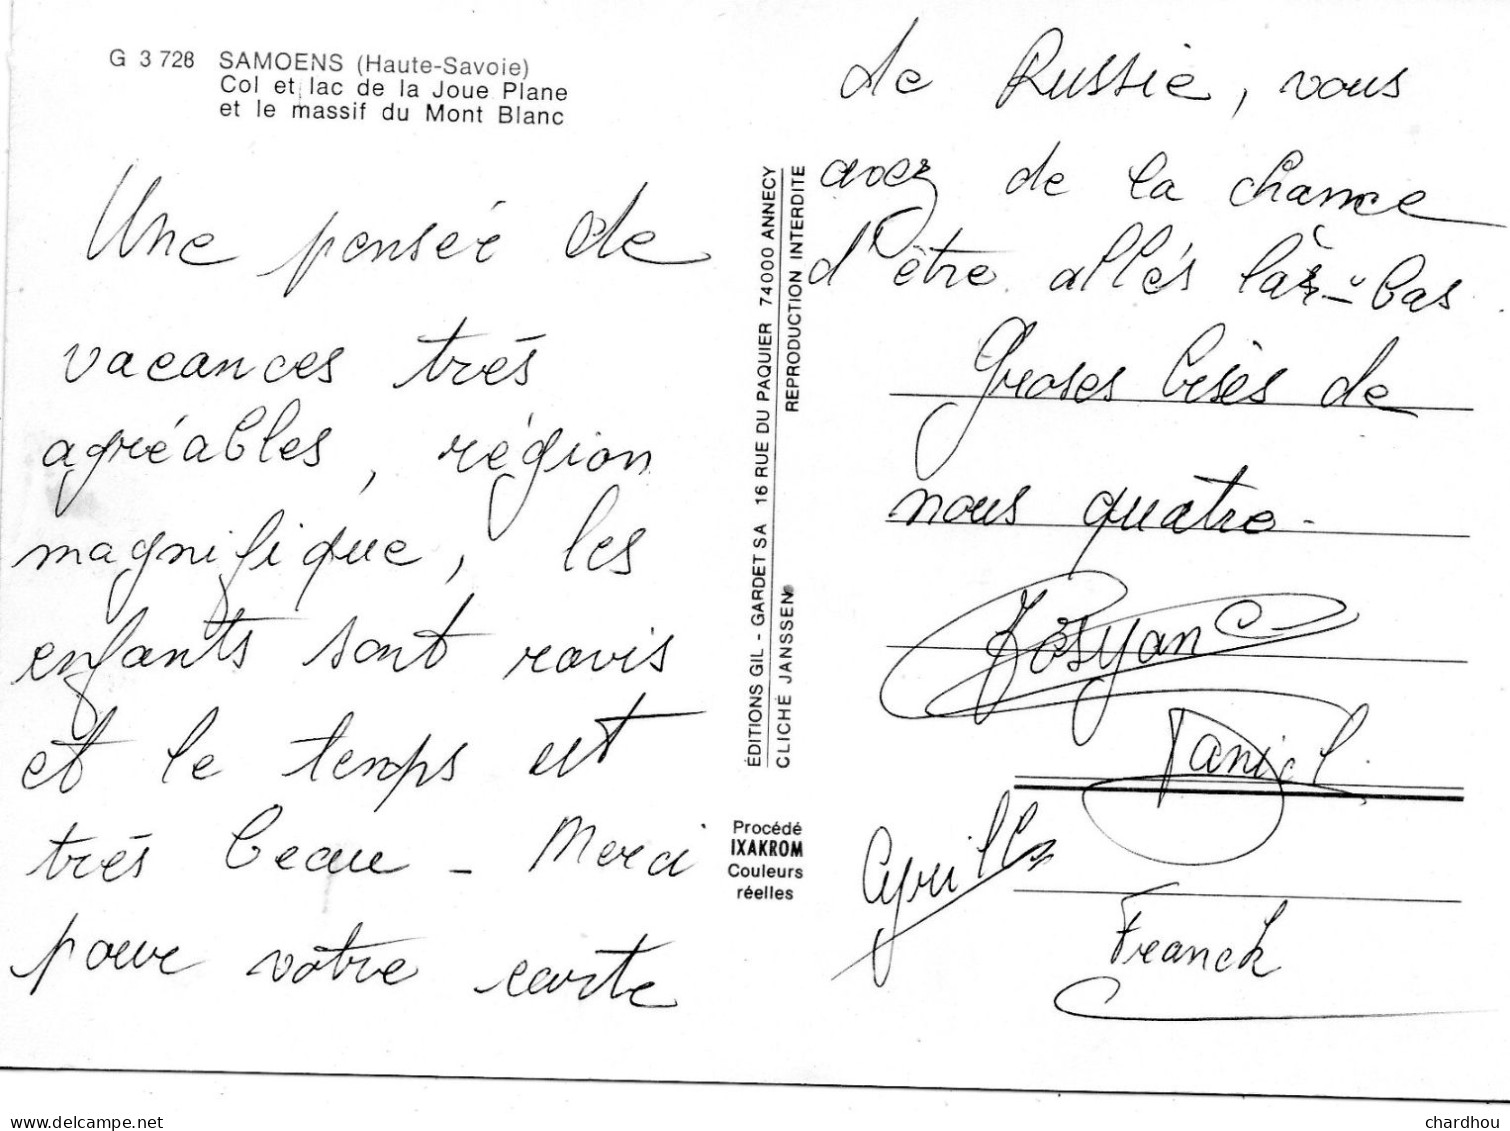 G 3 728 SAMOENS (Haute-Savoie)
Col et lac de la Joue Plane
et le massif du Mont Blanc
Une pensée de
vacances trés
agréables, région
magnifique, les
enfants sont ravis
et le temps est
trés beau - Merci
pour vôtre carte
de Russie, vous
avez de la chance
d'être allés làs-bas.
Groses bises de
nous quatre.
Josyane
Daniel
Cyrille
Franck
ÉDITIONS GIL - GARDET SA 16 RUE DU PAQUIER 74000 ANNECY
CLICHÉ JANSSEN REPRODUCTION INTERDITE
Procédé
IXAKROM
Couleurs
réelles
delcampe.net
chardhou